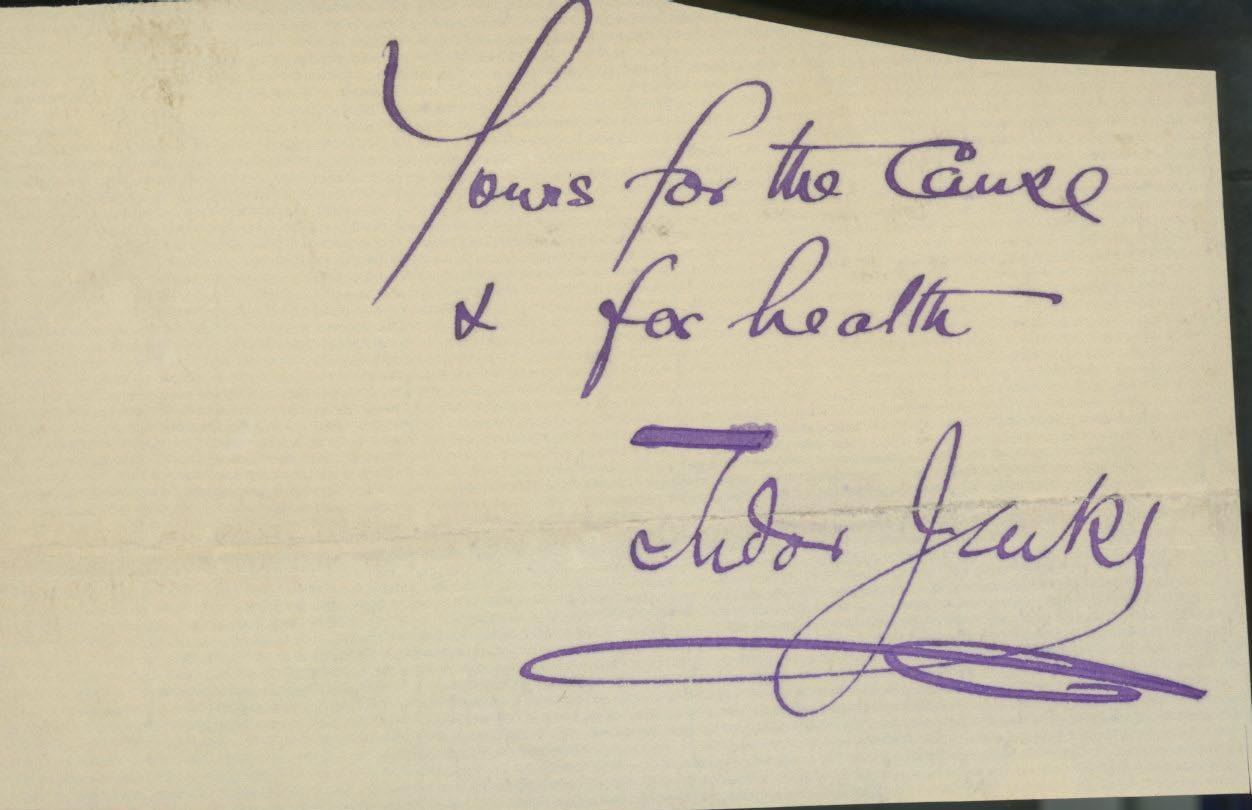 Yours for the Cause
& for health
Tudor Jenks